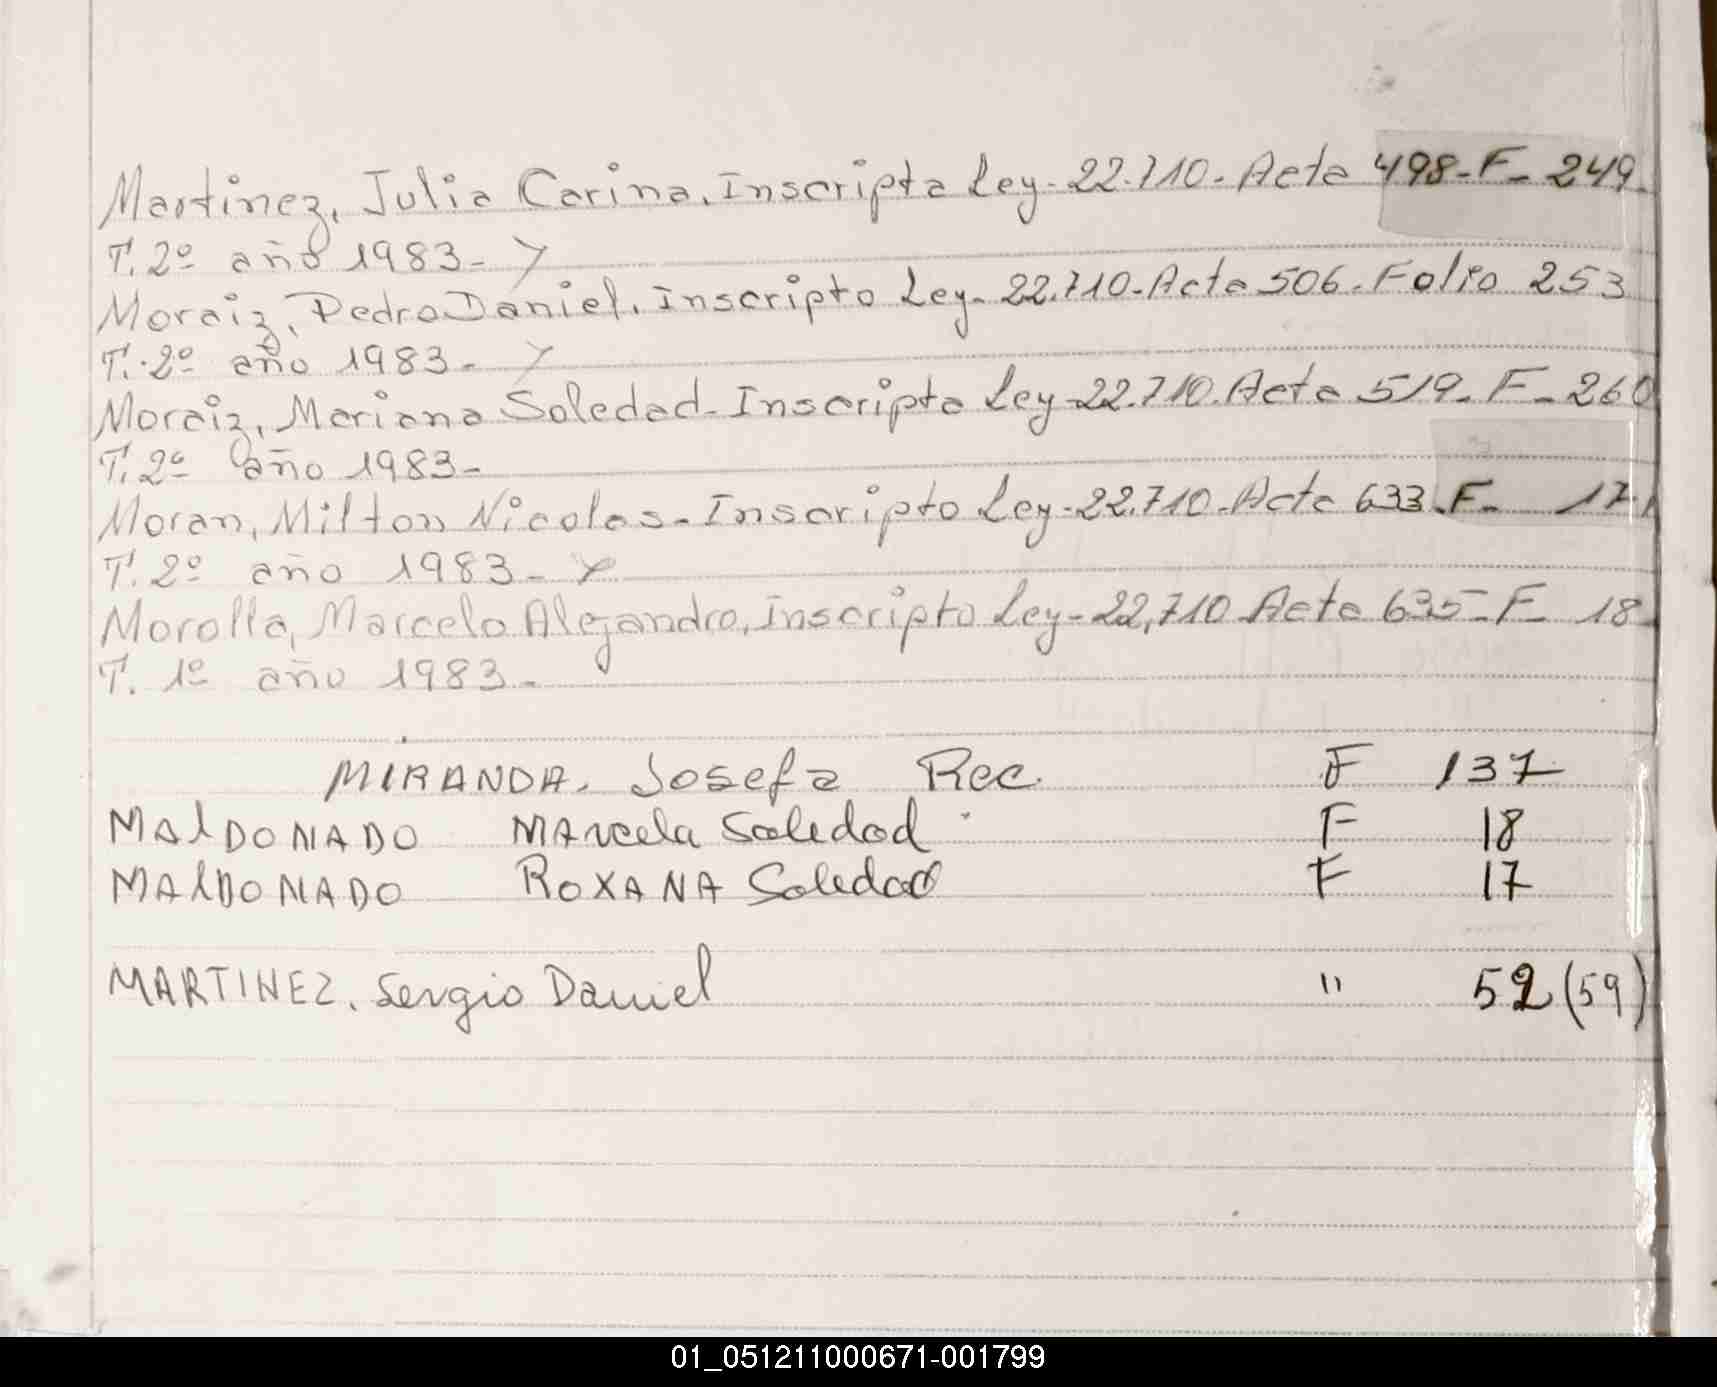 Martinez, Julia Carina, Inscripta Ley-22.710-Acta 498-F-249
T. 2º año 1983-
Moraiz, Pedro Daniel, inscripto Ley-22.710-Acta 506-Folio 253
T. 2º año 1983-
Moraiz, Mariana Soledad-Inscripta Ley-22.710-Acta 519-F-260
T. 2º año 1983-
Moran, Milton Nicolas-Inscripto Ley-22.710-Acta 633-F- 17
T. 2º año 1983-
Morolla, Marcelo Alejandro, inscripto Ley-22,710 Acta 635-F- 18
T. 1º año 1983-
MIRANDA, Josefa Rec. F 137
MALDONADO MARcela Soledad F 18
MALDONADO ROXANA Soledad F 17
MARTINEZ, Sergio Daniel " 52 (59)
01_051211000671-001799